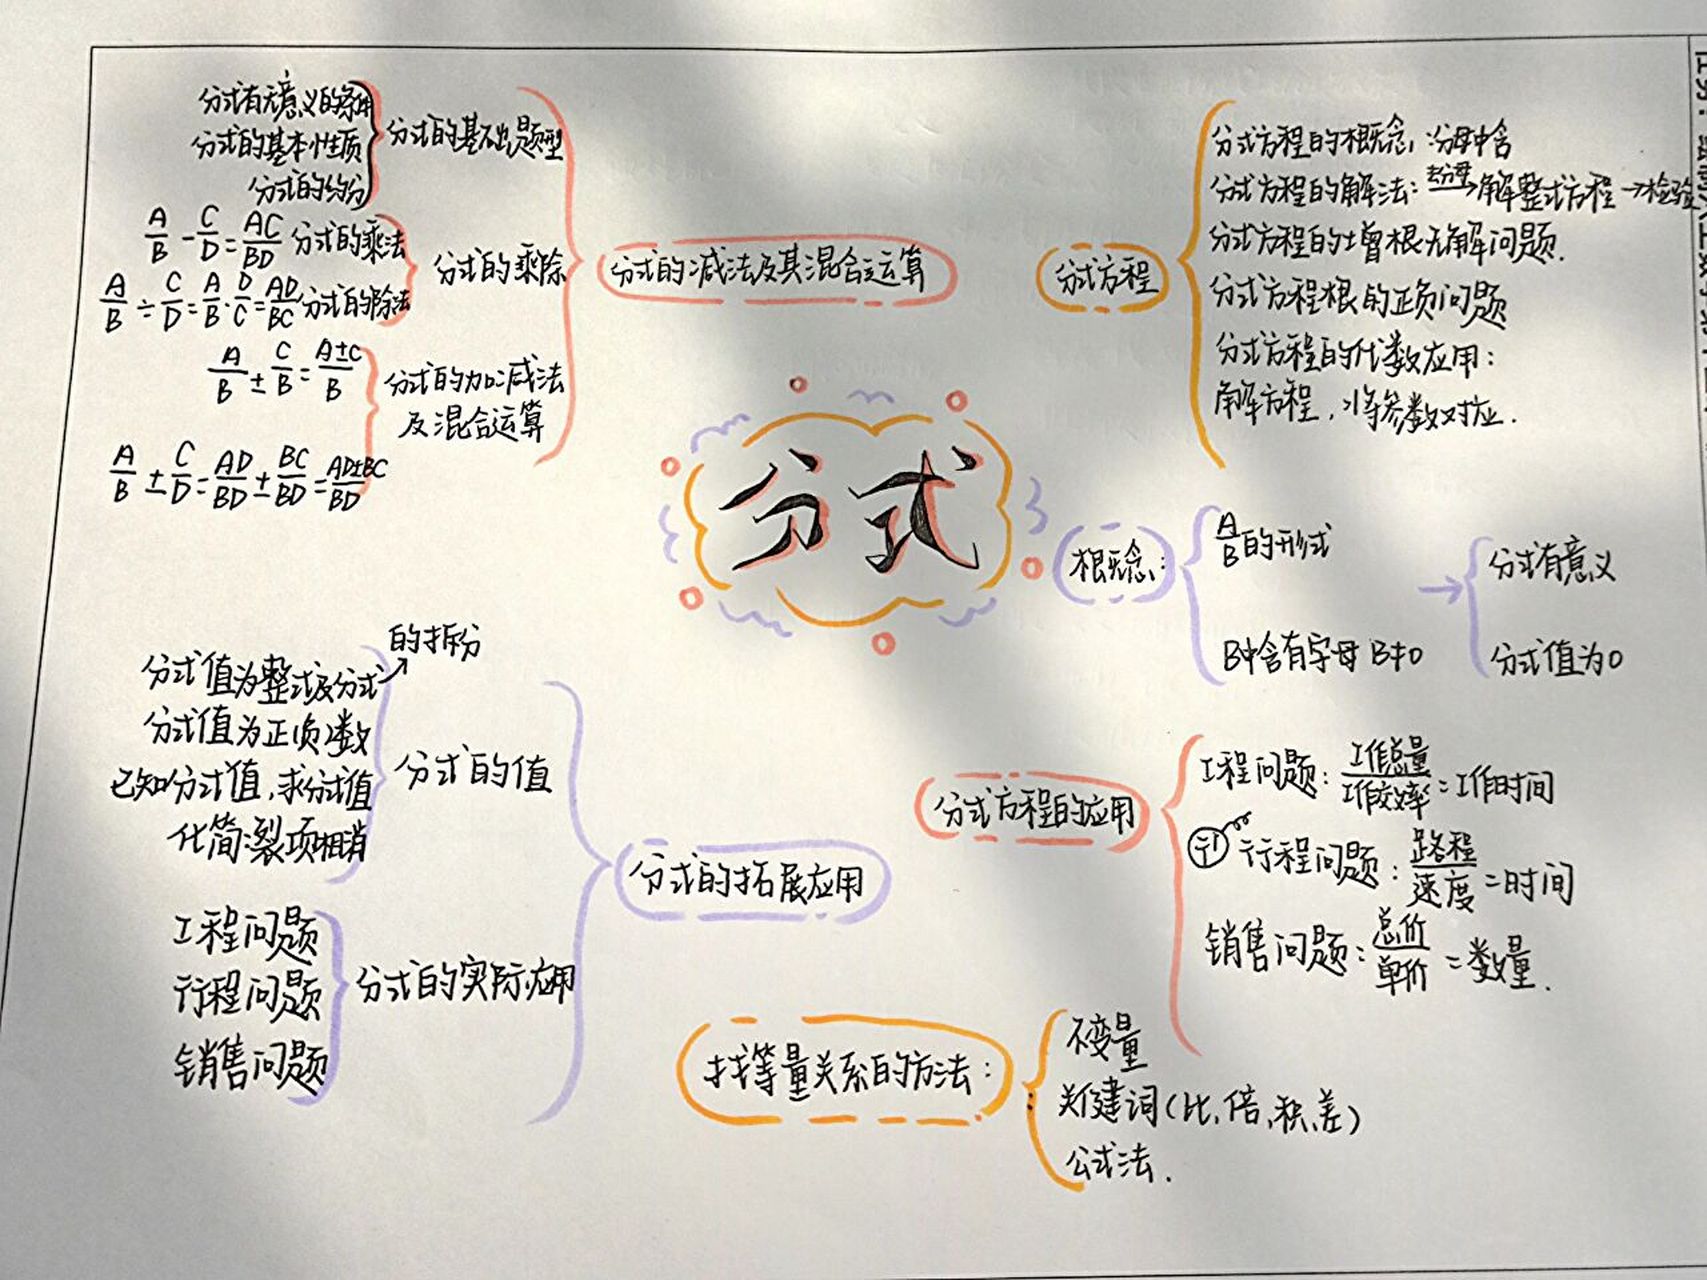 分式
分式的减法及其混合运算
分式的基础题型
分式有无意义的条件
分式的基本性质
分式的约分
分式的乘除
A/B - C/D = AC/BD 分式的乘法
A/B ÷ C/D = A/B · D/C = AD/BC 分式的除法
分式的加减法
及混合运算
A/B ± C/B = A±C/B
A/B ± C/D = AD/BD ± BC/BD = AD±BC/BD
分式方程
分式方程的概念:分母中含
分式方程的解法:去分母→解整式方程→检验
分式方程的增根无解问题.
分式方程根的正负问题
分式方程的代数应用:
解方程,将参数对应.
概念:
A/B的形式
B中含有字母 B≠0
→
分式有意义
分式值为0
分式方程的应用
工程问题:工作总量/工作效率=工作时间
行程问题:路程/速度=时间
销售问题:总价/单价=数量.
找等量关系的方法:
不变量
关键词(比,倍,积,差)
公式法.
分式的拓展应用
分式的值
分式值为整式及分式→的拆分
分式值为正负数
已知分式值,求分式值
化简:裂项相消
分式的实际应用
工程问题
行程问题
销售问题